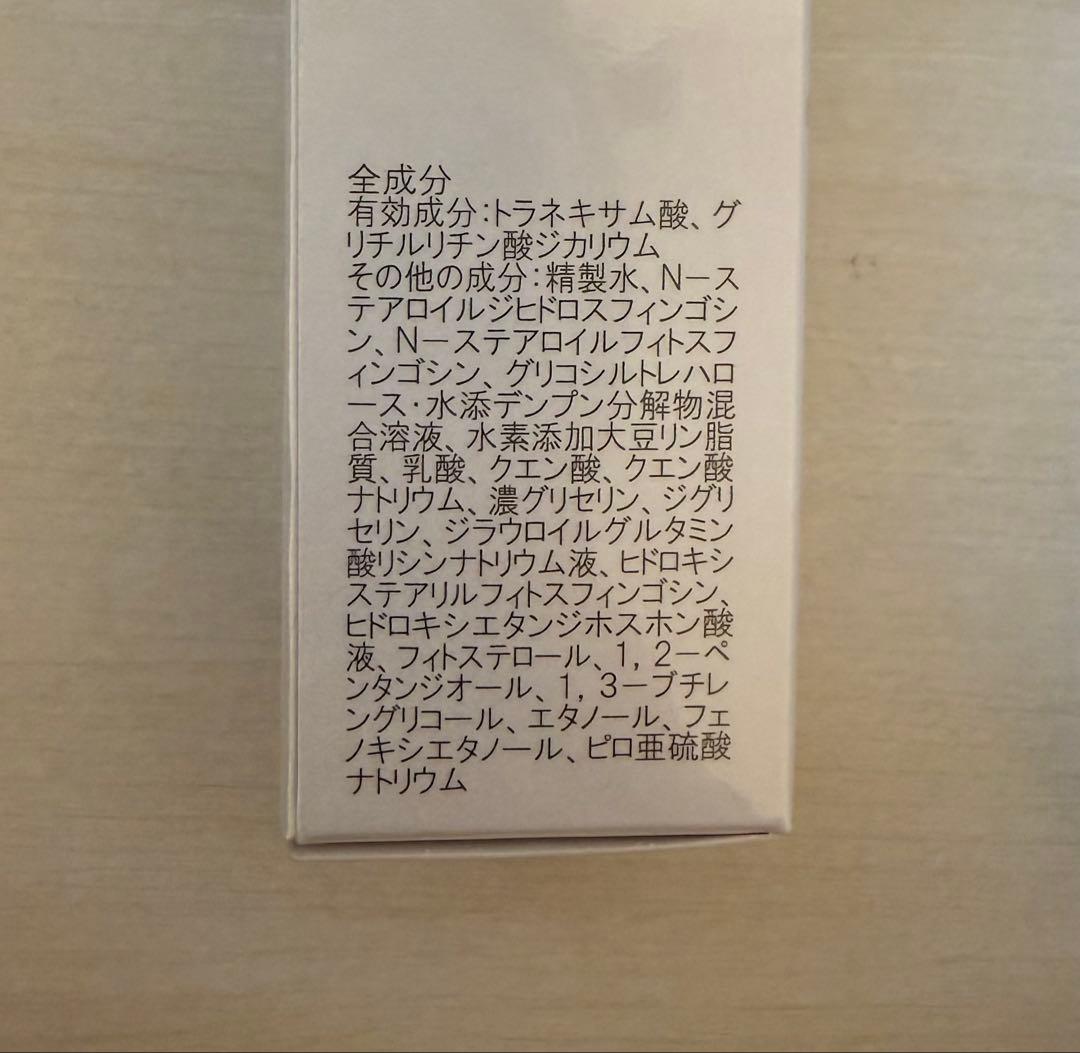 全成分
有効成分：トラネキサム酸、グ
リチルリチン酸ジカリウム
その他の成分：精製水、N－ス
テアロイルジヒドロスフィンゴシ
ン、N－ステアロイルフィトスフ
ィンゴシン、グリコシルトレハロ
ース・水添デンプン分解物混
合溶液、水素添加大豆リン脂
質、乳酸、クエン酸、クエン酸
ナトリウム、濃グリセリン、ジグリ
セリン、ジラウロイルグルタミン
酸リシンナトリウム液、ヒドロキシ
ステアリルフィトスフィンゴシン、
ヒドロキシエタンジホスホン酸
液、フィトステロール、1，2－ペ
ンタンジオール、1，3－ブチレ
ングリコール、エタノール、フェ
ノキシエタノール、ピロ亜硫酸
ナトリウム